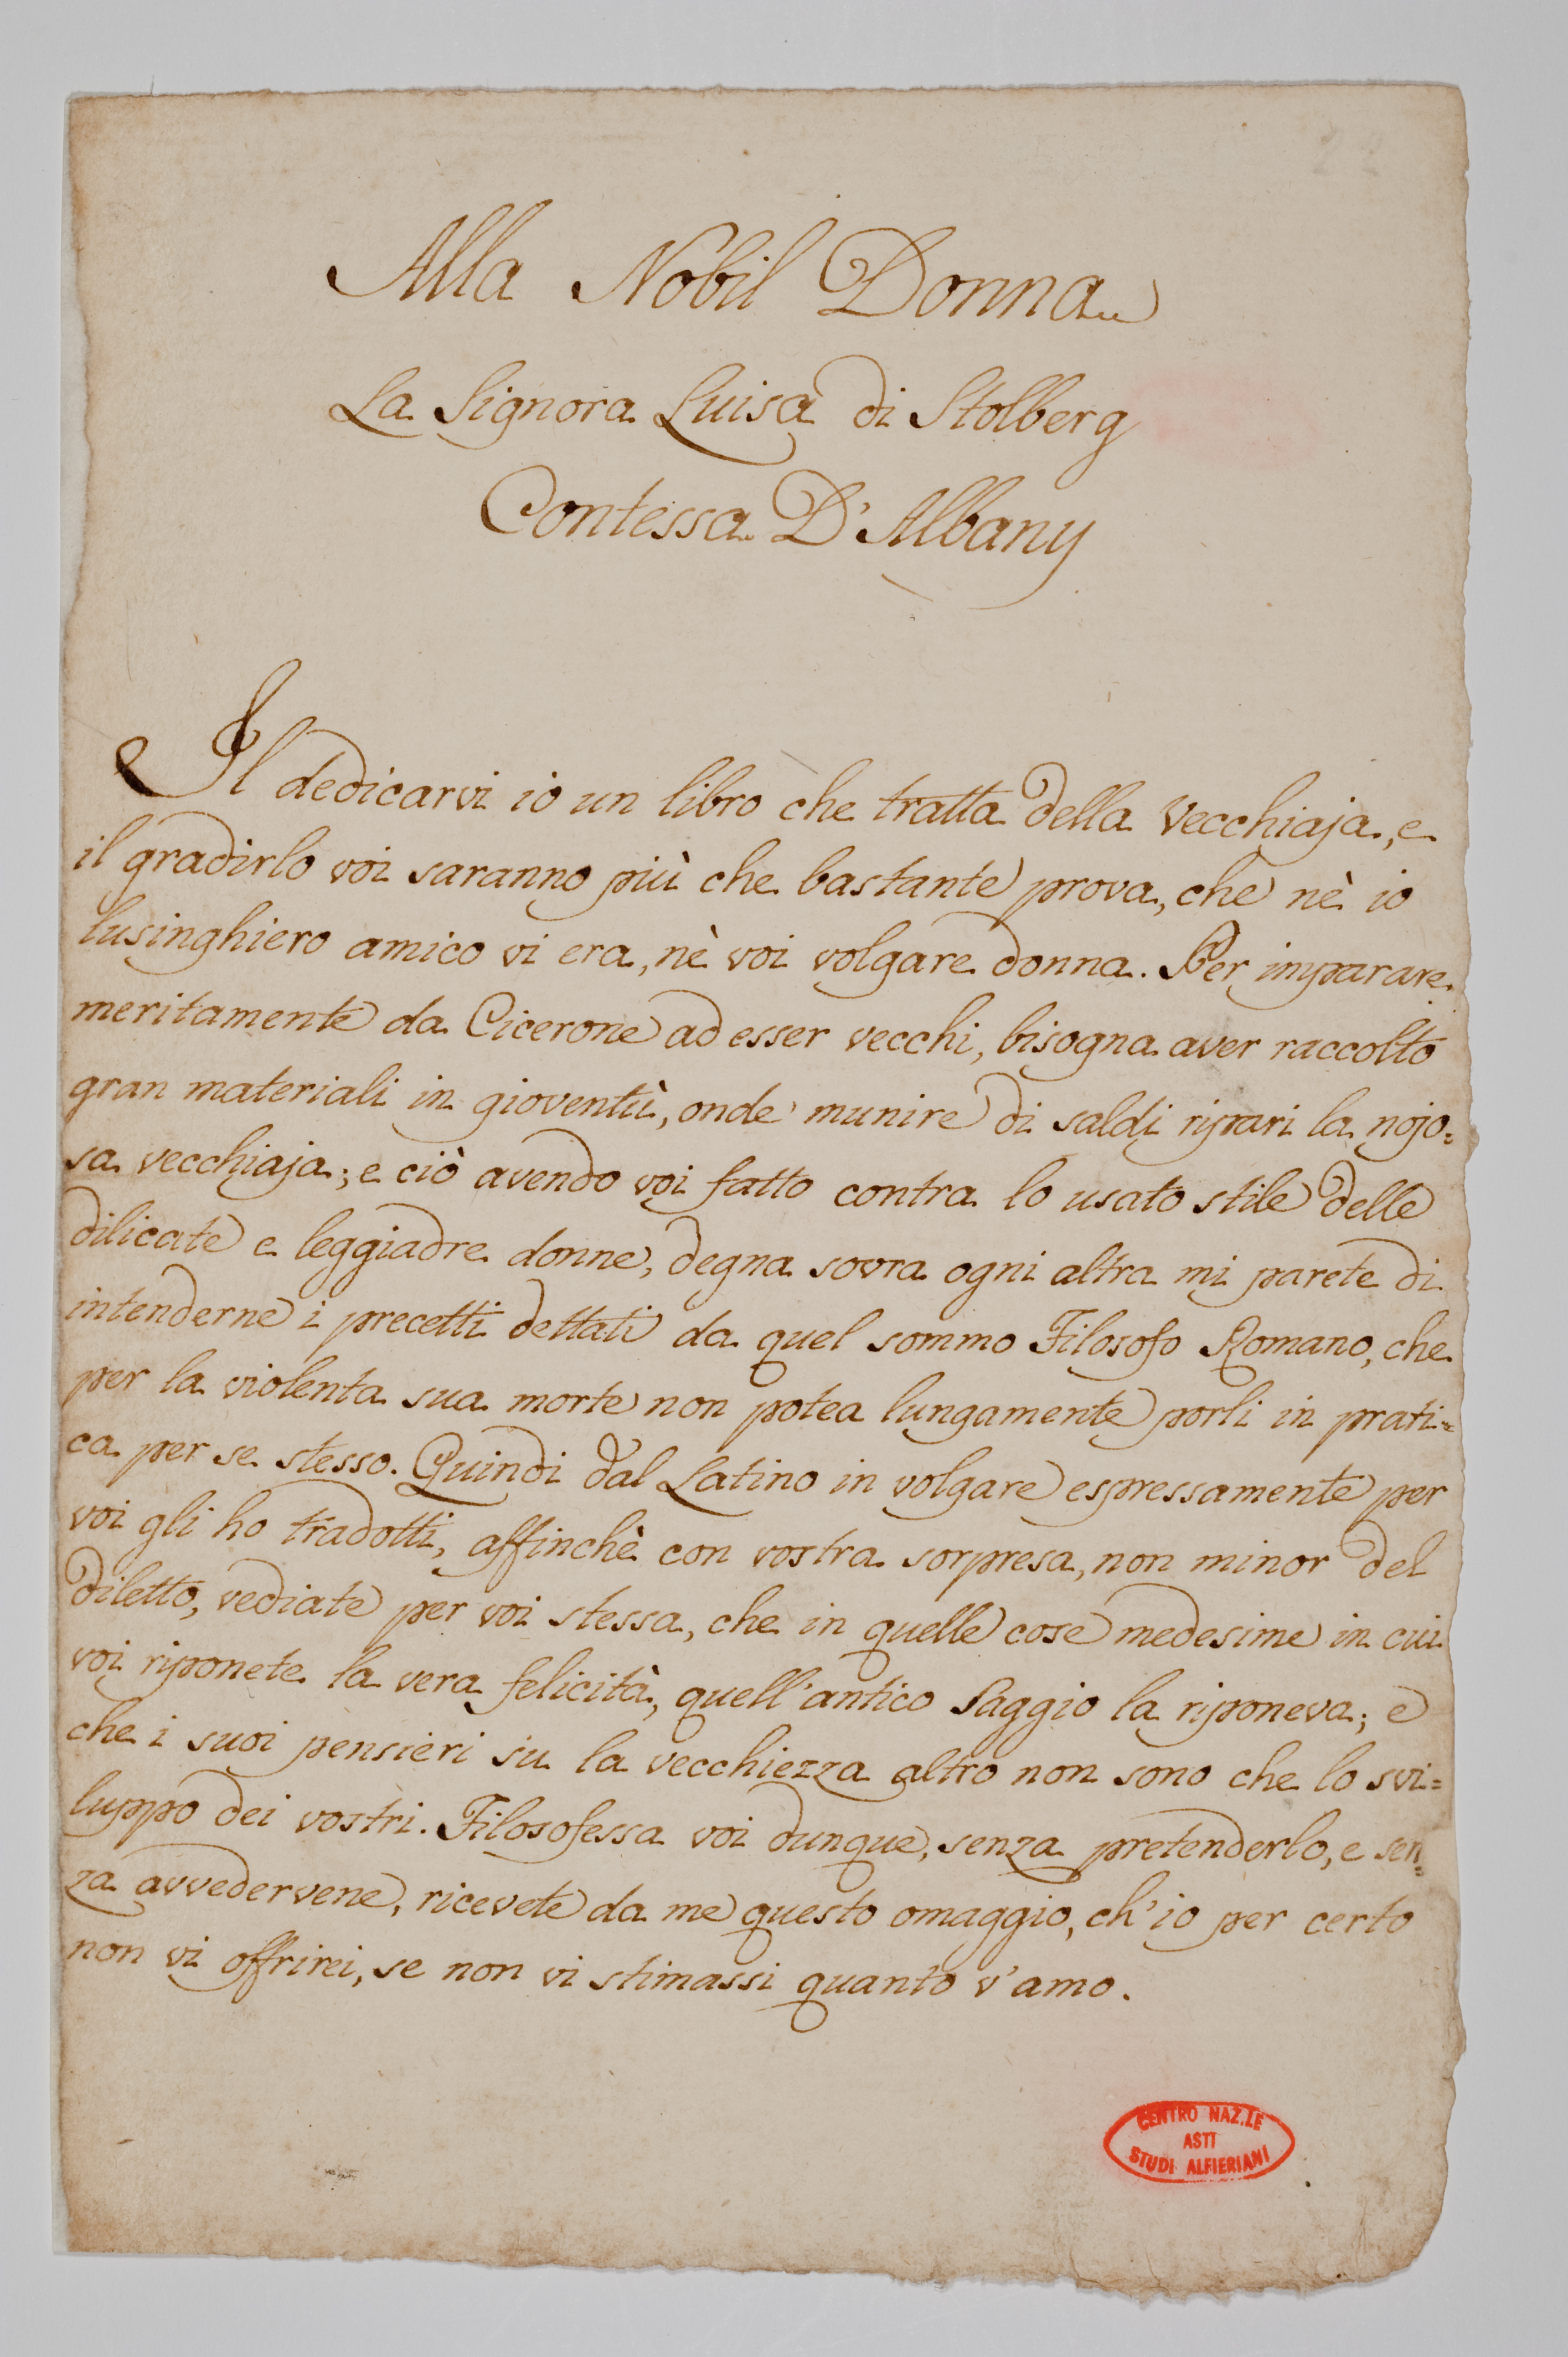 Alla Nobil Donna
La Signora Luisa di Stolberg
Contessa D'Albany
Il dedicarvi io un libro che tratta della Vecchiaja, e
il gradirlo voi saranno più che bastante prova, che nè io
lusinghiero amico vi era, nè voi volgare donna. Per imparare
meritamente da Cicerone ad esser vecchi, bisogna aver raccolto
gran materiali in gioventù, onde munire di saldi ripari la nojo=
sa vecchiaja; e ciò avendo voi fatto contra lo usato stile delle
dilicate e leggiadre donne, degna sovra ogni altra mi parete di
intenderne i precetti dettati da quel sommo Filosofo Romano, che
per la violenta sua morte non potea lungamente porli in prati=
ca per se stesso. Quindi dal Latino in volgare espressamente per
voi gli ho tradotti, affinchè con vostra sorpresa, non minor del
diletto, vediate per voi stessa, che in quelle cose medesime in cui
voi riponete la vera felicità, quell'antico Saggio la riponeva; e
che i suoi pensieri su la vecchiezza altro non sono che lo svi=
luppo dei vostri. Filosofessa voi dunque, senza pretenderlo, e sen=
za avvedervene, ricevete da me questo omaggio, ch'io per certo
non vi offrirei, se non vi stimassi quanto v'amo.
CENTRO NAZ.LE
ASTI
STUDI ALFIERIANI